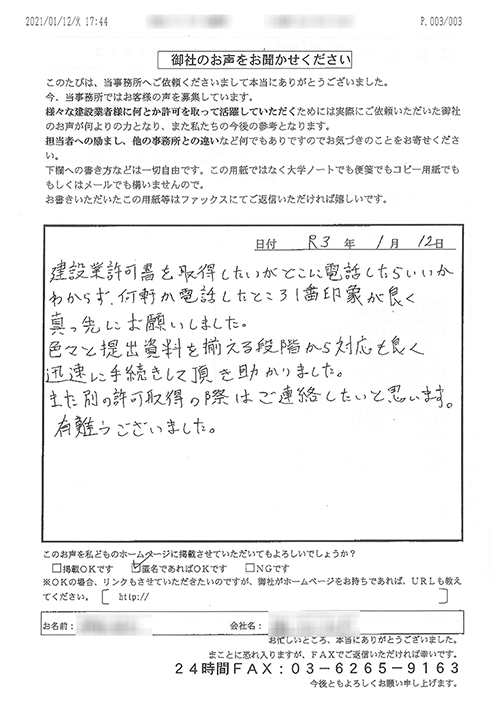 2021/01/12/火 17:44
P.003/003
御社のお声をお聞かせください
このたびは、当事務所へご依頼くださいまして本当にありがとうございました。
今、当事務所ではお客様の声を募集しています。
様々な建設業者様に何とか許可を取って活躍していただくためには実際にご依頼いただいた御社
のお声が何よりの力となり、また私たちの今後の参考となります。
担当者への励まし、他の事務所との違いなど何でもありですのでお気づきのことをお寄せくださ
い。
下欄への書き方などは一切自由です。この用紙ではなく大学ノートでも便箋でもコピー用紙でも
もしくはメールでも構いませんので。
お書きいただいたこの用紙等はファックスにてご返信いただければ嬉しいです。
日付 R3 年 1月 12日
建設業許可書を取得したいがどこに電話したらいいか
わからず、何軒か電話したところ1番印象が良く
真っ先にお願いしました。
色々と提出資料を揃える段階から対応も良く
迅速に手続きして頂き助かりました。
また別の許可取得の際はご連絡したいと思います。
有難うございました。
このお声を私どものホームページに掲載させていただいてもよろしいでしょうか?
□掲載OKです ☑匿名であればOKです □NGです
※OKの場合、リンクもさせていただきたいのですが、御社がホームページをお持ちであれば、URLも教え
てください。[ http:// ]
お名前: 会社名:
お忙しいところ、本当にありがとうございました。
まことに恐れ入りますが、FAXでご返信いただければ幸いです。
24時間FAX:03-6265-9163
今後ともよろしくお願い申し上げます。